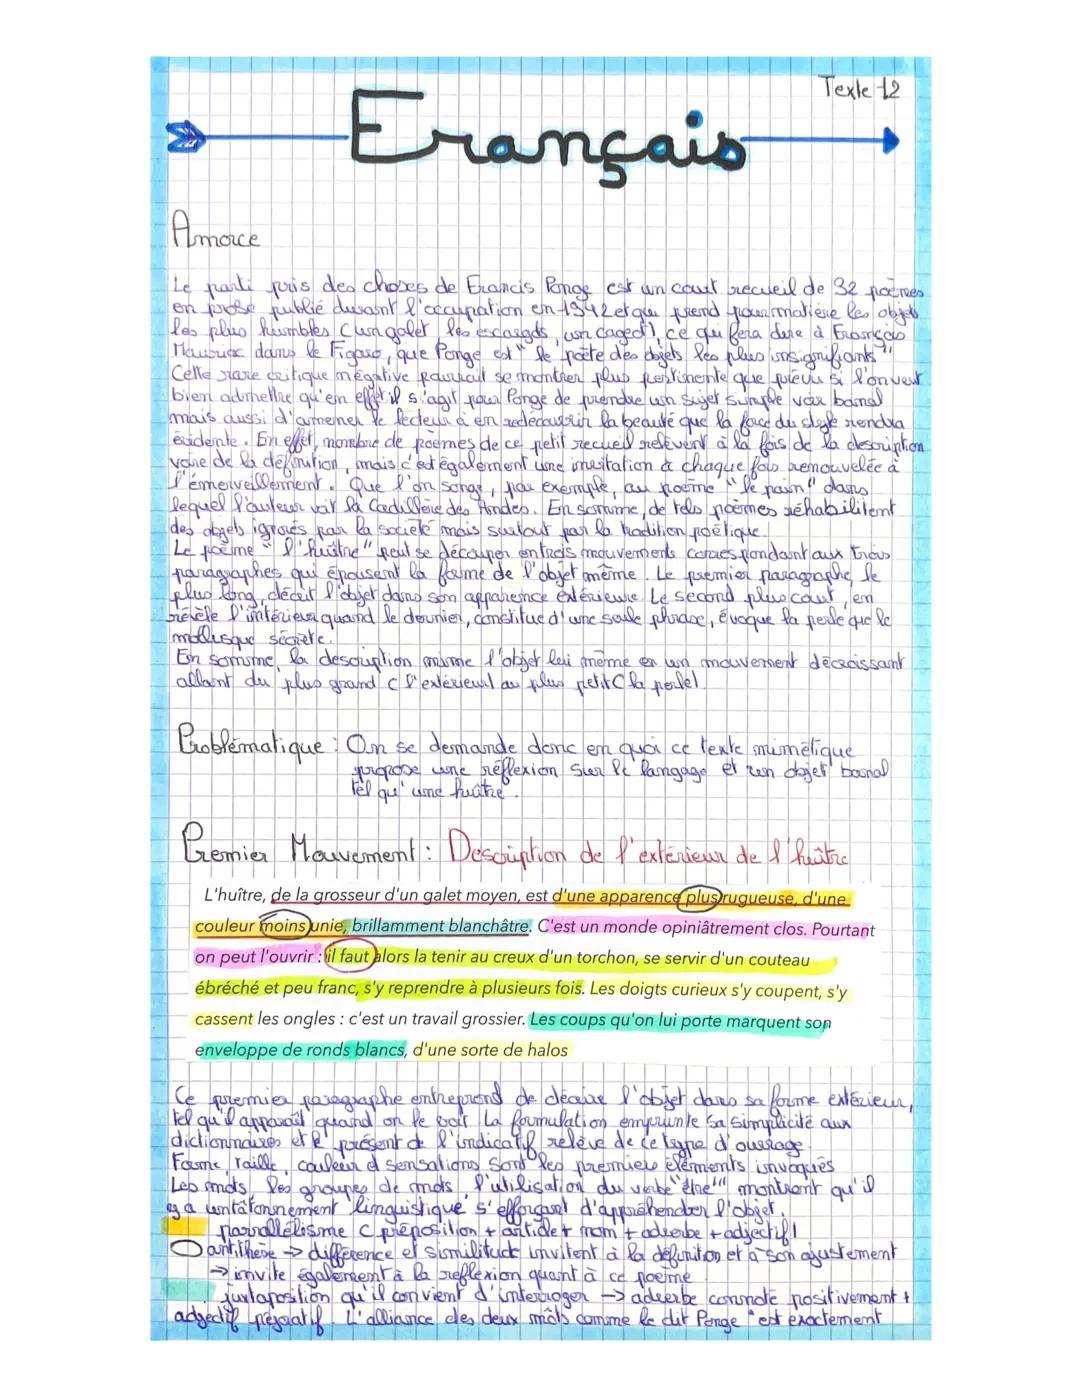 Texte 12
Français
Amorce
Le parti pris des choses de Francis Ponge est un court recueil de 32 poèmes
en prose publié durant l'occupation en 1942 et qui prend pour matière les objets
les plus humbles (un galet, les escargots, un cageot), ce qui fera dire à François
Mauriac dans le Figaro, que Ponge est "le poète des objets les plus insignifiants".
Cette rare critique négative pourrait se montrer plus pertinente que prévu si l'on veut
bien admettre qu'en effet il s'agit pour Ponge de prendre un sujet simple voir banal
mais aussi d'amener le lecteur à en redécouvrir la beauté que la force du style rendra
évidente. En effet, nombre de poèmes de ce petit recueil relèvent à la fois de la description
voire de la définition, mais c'est également une invitation à chaque fois renouvelée à
l'émerveillement. Que l'on songe, par exemple, au poème "le pain" dans
lequel l'auteur voit la Cordillère des Andes. En somme, de tels poèmes réhabilitent
des objets ignorés par la société mais surtout par la tradition poétique.
Le poème "l'huître" peut se découper en trois mouvements correspondant aux trois
paragraphes qui épousent la forme de l'objet même. Le premier paragraphe, le
plus long, décrit l'objet dans son apparence extérieure. Le second plus court, en
révèle l'intérieur quand le dernier, constitué d'une seule phrase, évoque la perle que le
mollusque sécrète.
En somme, la description mime l'objet lui même en un mouvement décroissant
allant du plus grand (l'extérieur) au plus petit (la perle).
Problématique : On se demande donc en quoi ce texte mimétique
propose une réflexion sur le langage et un objet banal
tel qu'une huître.
Premier Mouvement : Description de l'extérieur de l'huître
L'huître, de la grosseur d'un galet moyen, est d'une apparence plus rugueuse, d'une
couleur moins unie, brillamment blanchâtre. C'est un monde opiniâtrement clos. Pourtant
on peut l'ouvrir : il faut alors la tenir au creux d'un torchon, se servir d'un couteau
ébréché et peu franc, s'y reprendre à plusieurs fois. Les doigts curieux s'y coupent, s'y
cassent les ongles : c'est un travail grossier. Les coups qu'on lui porte marquent son
enveloppe de ronds blancs, d'une sorte de halos
Ce premier paragraphe entreprend de décrire l'objet dans sa forme extérieur,
tel qu'il apparaît quand on le voit. La formulation emprunte sa simplicité aux
dictionnaires et le présent de l'indicatif relève de ce type d'ouvrage.
Forme, taille, couleur et sensations sont les premiers éléments invoqués
Les mots, les groupes de mots, l'utilisation du verbe "être" montrent qu'il
y a un tâtonnement linguistique s'efforçant d'appréhender l'objet.
parallélisme (préposition + article + nom + adverbe + adjectif)
antithèse → différence et similitude invitent à la définition et à son ajustement
→ invite également à la reflexion quant à ce poème
juxtaposition qu'il convient d'interroger → adverbe connoté positivement +
adjectif péjoratif. L'alliance des deux mots comme le dit Ponge "est exactement